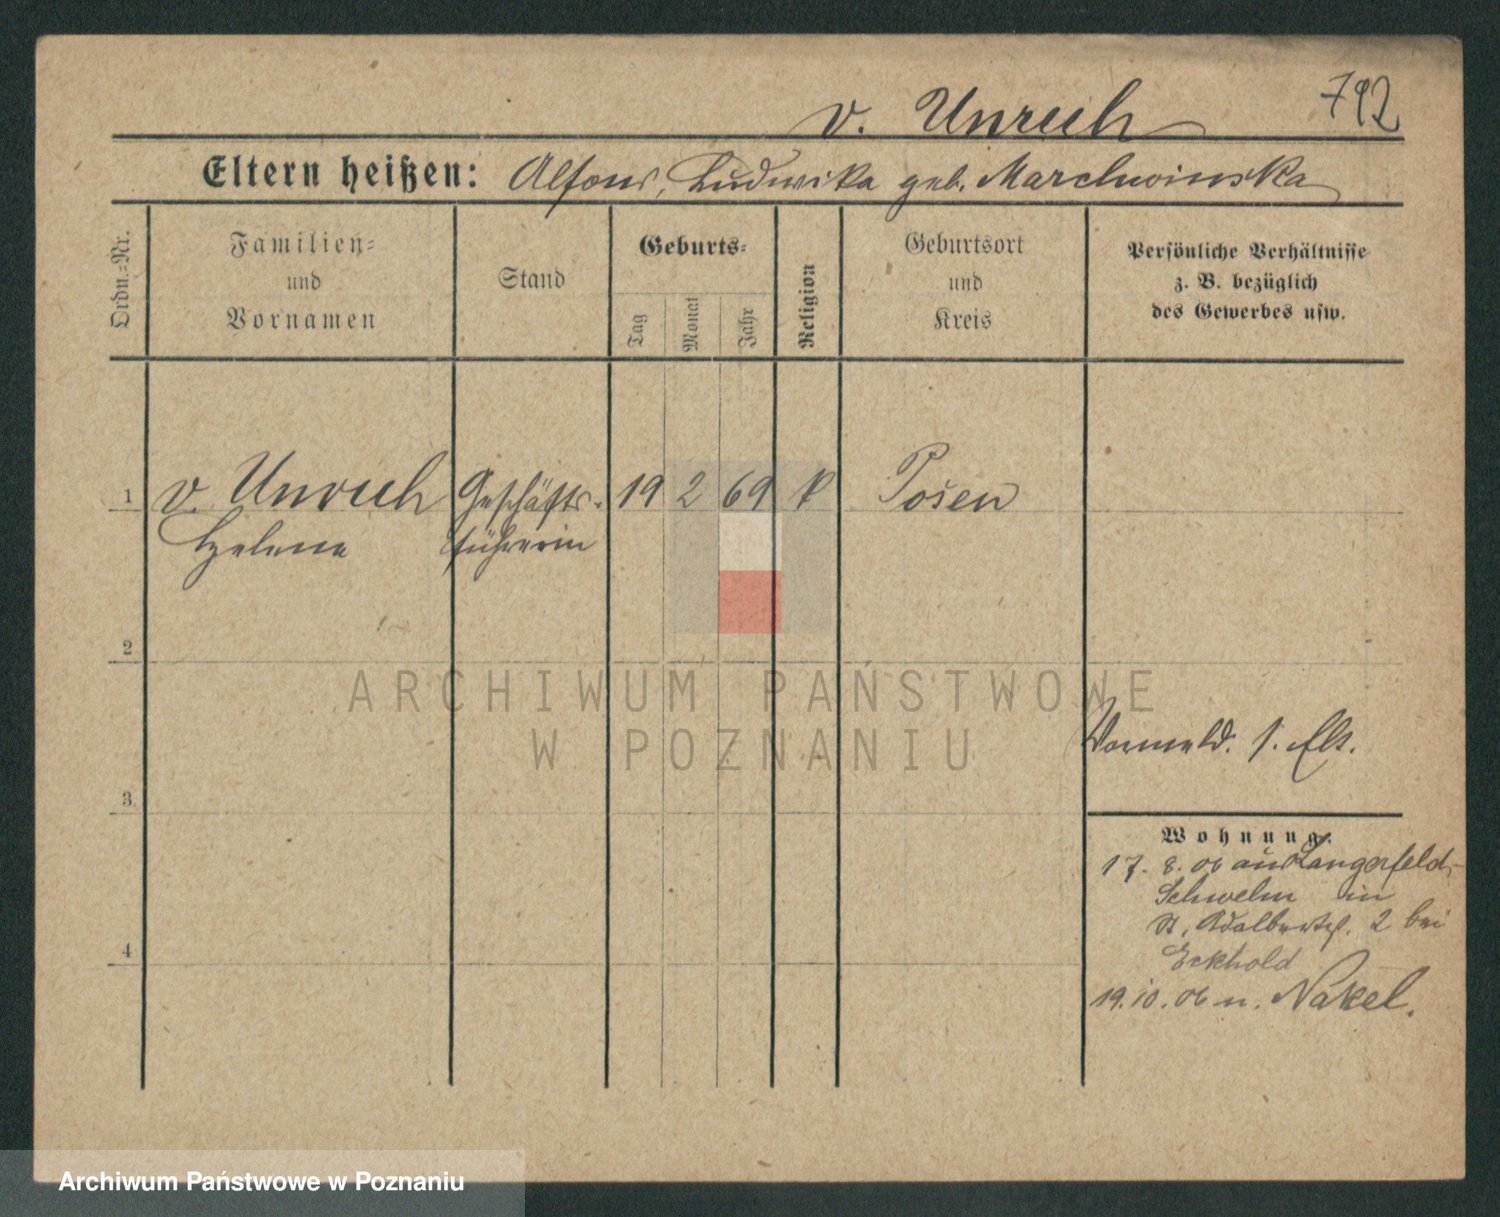 792
v. Unruh
Eltern heißen: Alfons, Ludwika geb. Marchwinska
Ordn.-Nr.
Familien-
und
Vornamen
Stand
Geburts-
Tag
Monat
Jahr
Religion
Geburtsort
und
Kreis
Persönliche Verhältnisse
z. B. bezüglich
des Gewerbes usw.
1 v. Unruh Geschäfts- 19 2 69 k Posen
Helene führerin
2
ARCHIWUM PAŃSTWOWE
W POZNANIU
3
Wohnung.
17. 8. 06 aus Langerfeld,
Schwelm in
St. Adalbertst. 2 bei
Eckhold
4
19. 10. 06 n. Nakel.
Archiwum Państwowe w Poznaniu